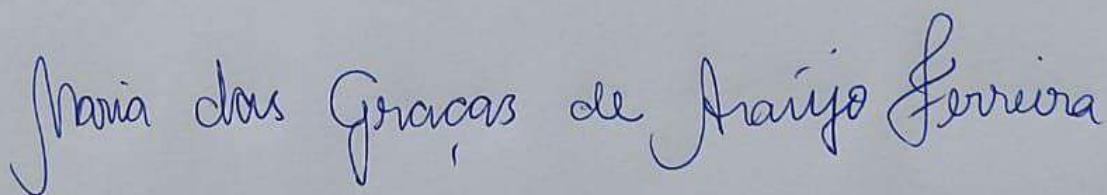 Maria das Graças de Araújo Ferreira